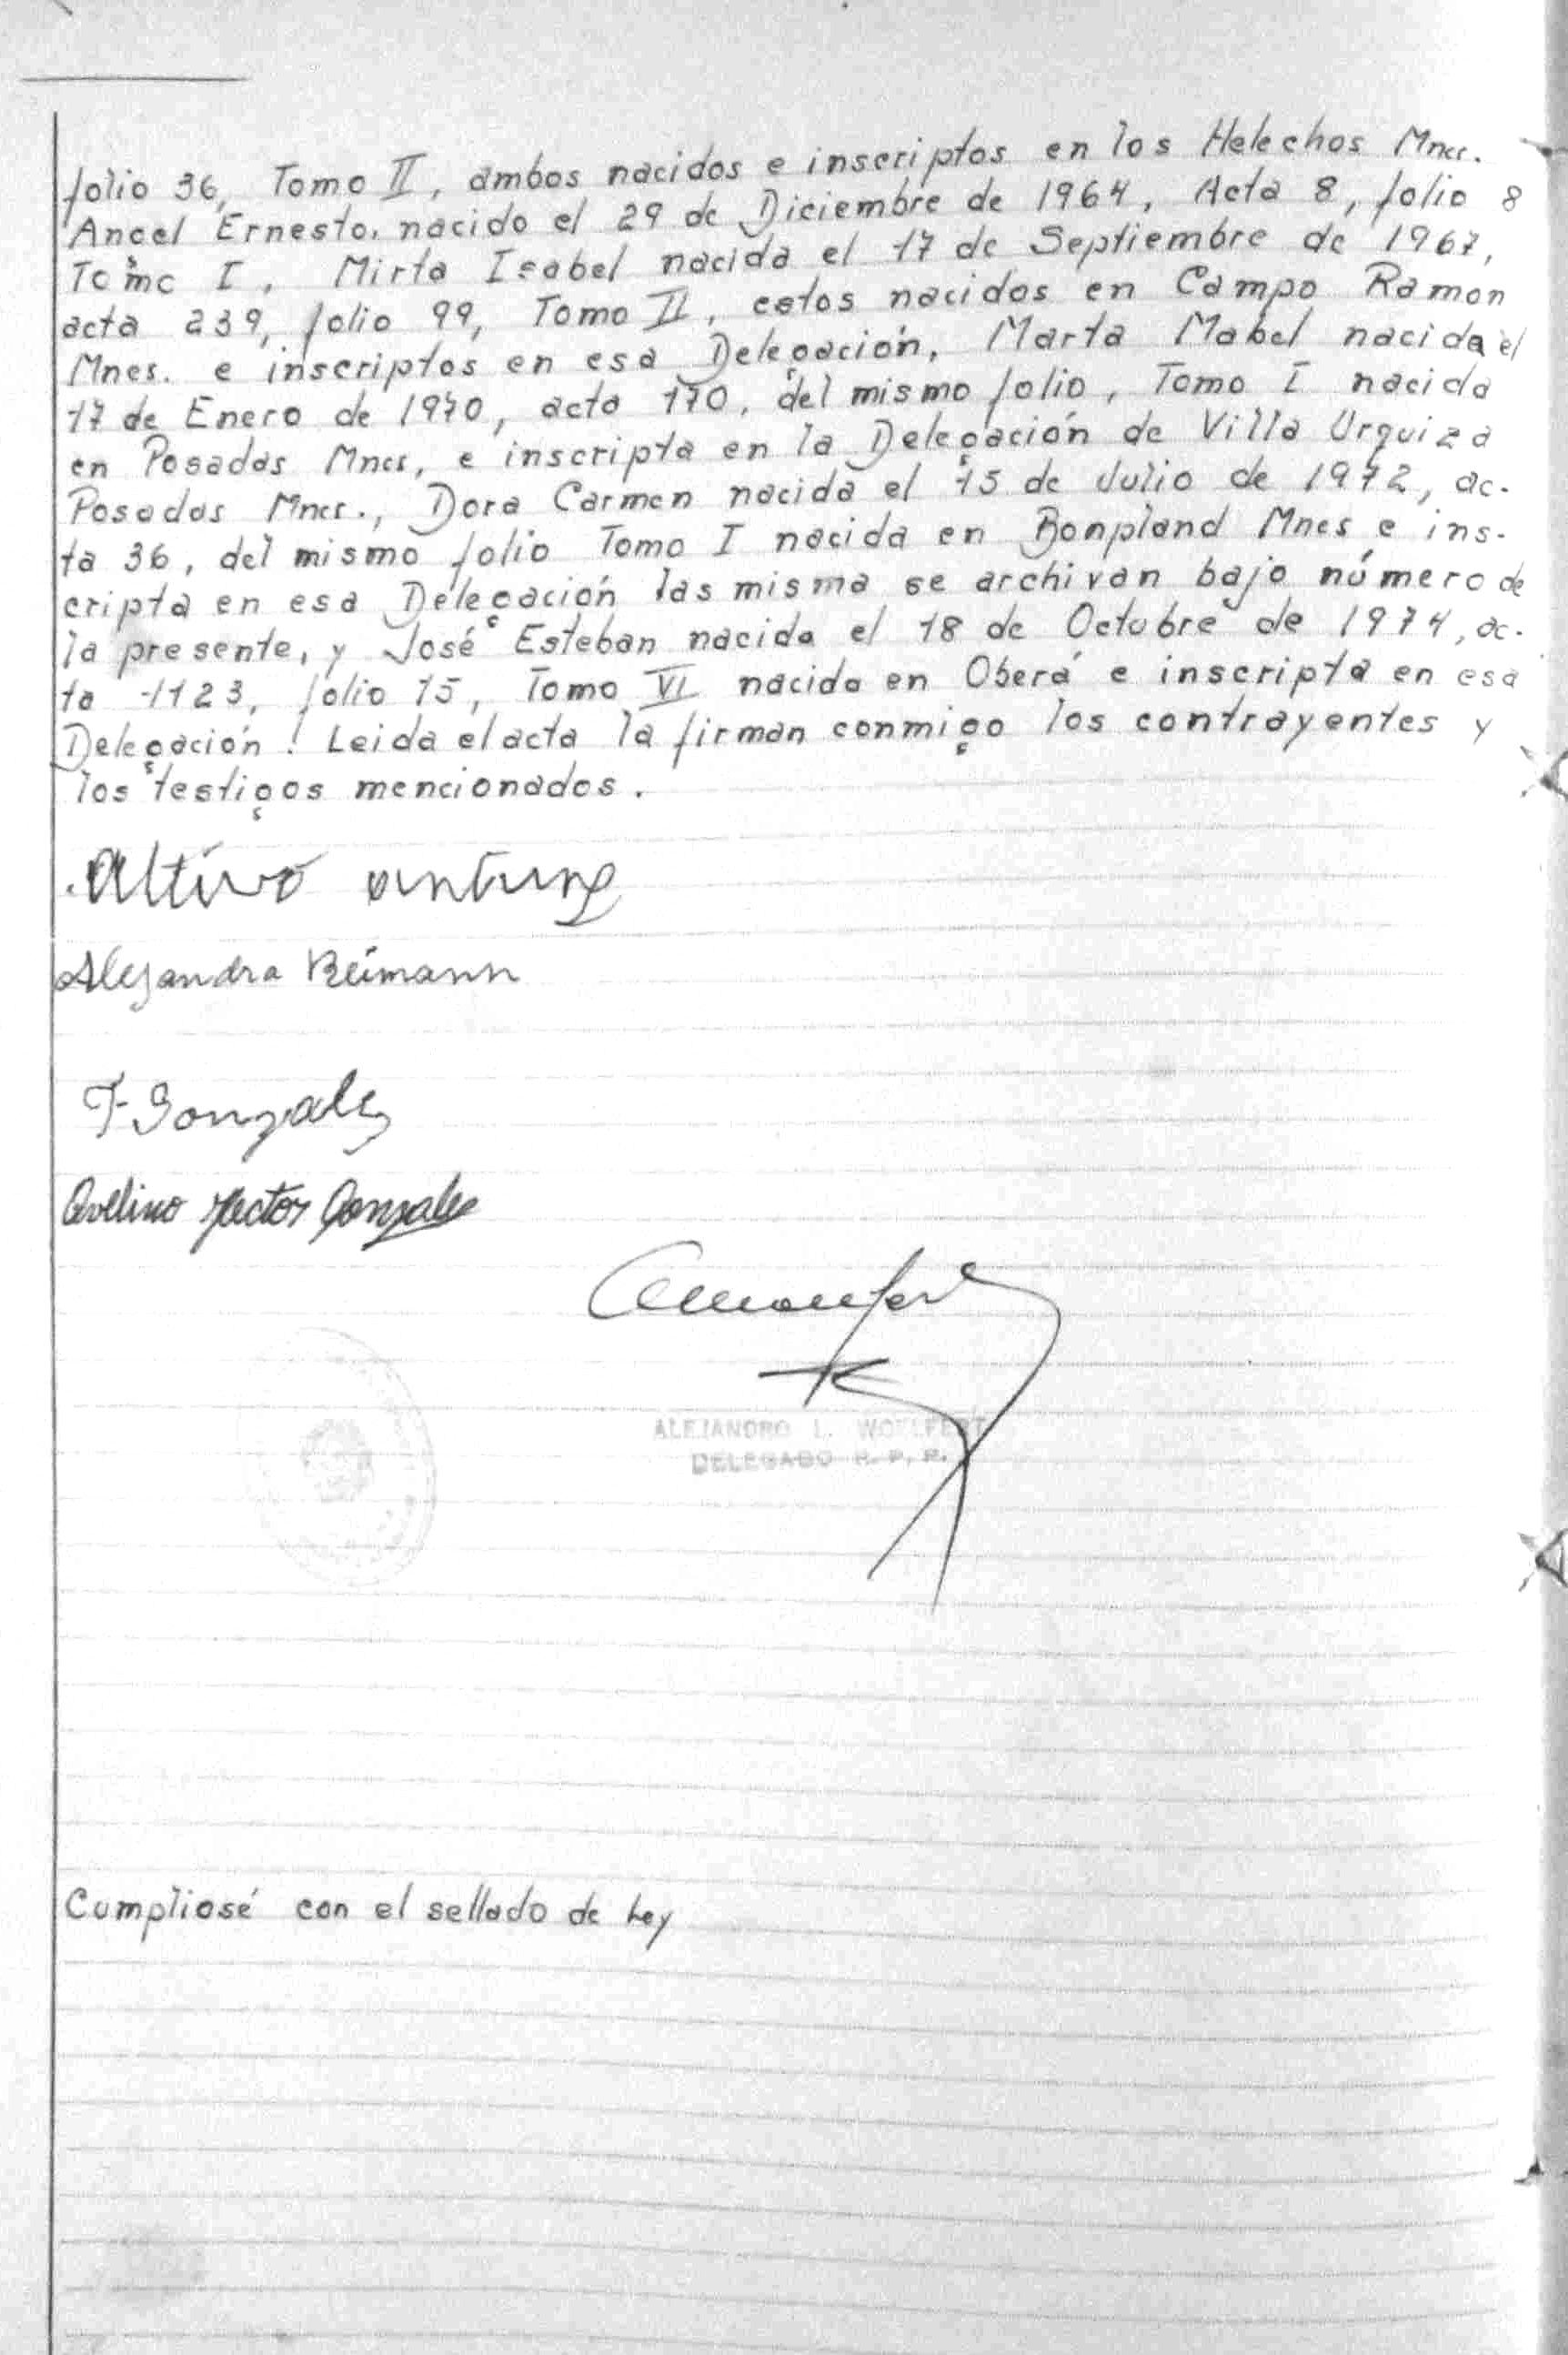 folio 36, Tomo II, ambos nacidos e inscriptos en los Helechos Mnes.
Angel Ernesto, nacido el 29 de Diciembre de 1964, Acta 8, folio 8
Tomo I, Mirta Isabel nacida el 17 de Septiembre de 1967,
acta 239, folio 99, Tomo II, estos nacidos en Campo Ramon
Mnes. e inscriptos en esa Delegación, Marta Mabel nacida el
17 de Enero de 1970, acta 170, del mismo folio, Tomo I nacida
en Posadas Mnes, e inscripta en la Delegación de Villa Urquiza
Posadas Mnes., Dora Carmen nacida el 15 de Julio de 1972, ac-
ta 36, del mismo folio Tomo I nacida en Bonpland Mnes e ins-
cripta en esa Delegación las misma se archivan bajo número de
la presente, y José Esteban nacida el 18 de Octubre de 1974, ac-
ta 1123, folio 15, Tomo VI nacido en Oberá e inscripta en esa
Delegación! Leida el acta la firman conmigo los contrayentes y
los testigos mencionados.
Altivo
Alejandra Reimann
F Gonzalez
Avelino Hector Gonzalez
ALEJANDRO L. WOELFERT
DELEGADO R. P. P.
Cumpliosé con el sellado de Ley